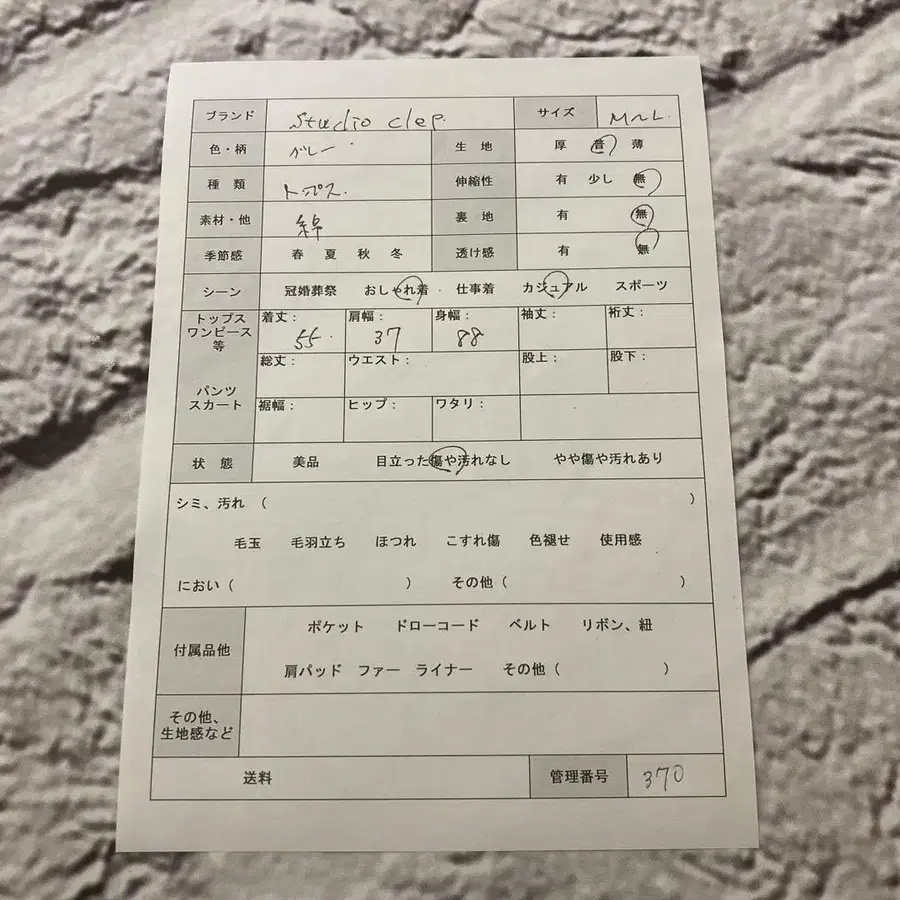 ブランド studio clep. サイズ M〜L.
色・柄 グレー 生地 厚 普 薄
種類 トップス. 伸縮性 有 少し 無
素材・他 綿 裏地 有 無
季節感 春 夏 秋 冬 透け感 有 無
シーン 冠婚葬祭 おしゃれ着 仕事着 カジュアル スポーツ
トップス
ワンピース
等
着丈： 55 肩幅： 37 身幅： 88 袖丈： 裄丈：
総丈： ウエスト： 股上： 股下：
パンツ
スカート
裾幅： ヒップ： ワタリ：
状態 美品 目立った傷や汚れなし やや傷や汚れあり
シミ、汚れ （ ）
毛玉 毛羽立ち ほつれ こすれ傷 色褪せ 使用感
におい（ ） その他（ ）
付属品他
ポケット ドローコード ベルト リボン、紐
肩パッド ファー ライナー その他（ ）
その他、
生地感など
送料 管理番号 370